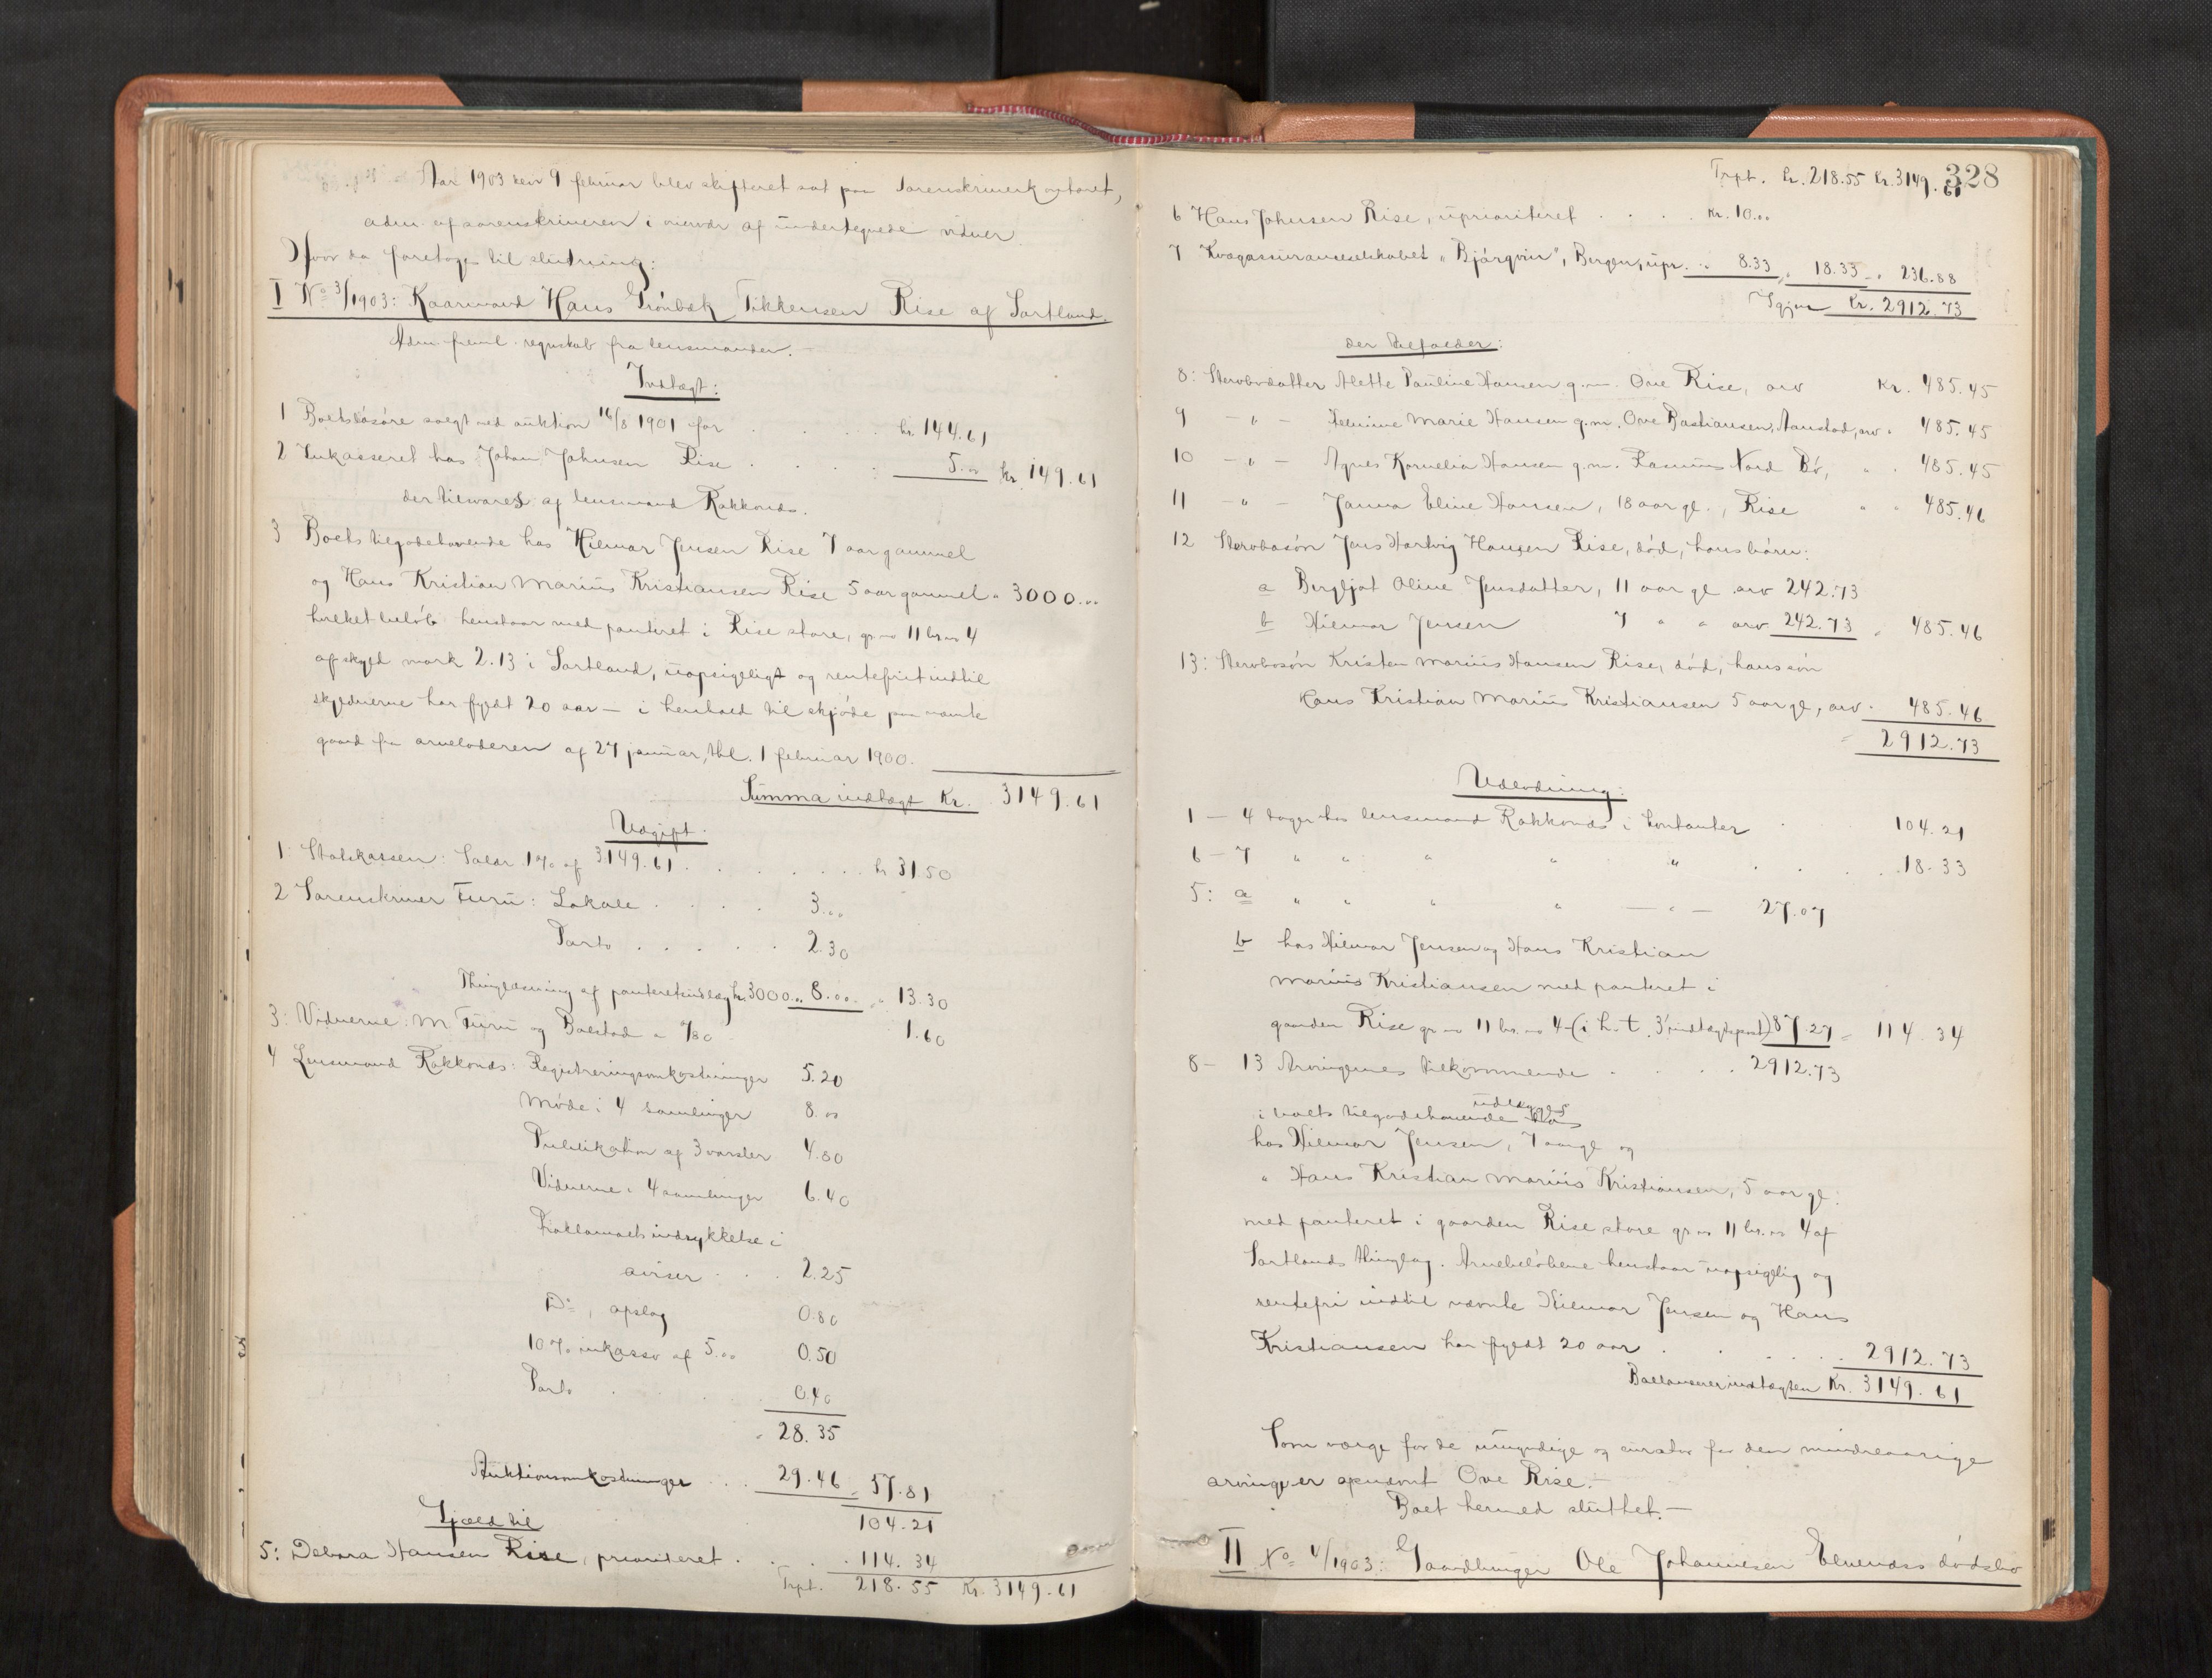 Aar 1903 den 9 februar blev skifteret sat paa sorenskriverkontoret,
adm. af sorenskriveren i overvær af undertegnede vidner.
Hvor da foretoges til slutning:
I No 3/1903: Kaarmand Hans Grönbek Tikkensen Rise af Sortland.
Adm freml. regnskab fra lensmanden.
Indtægt:
1 Boets lösöre solgt ved auktion 16/8 1901 for . . . . kr. 144.61
2 Inkasseret hos Johan Johnsen Rise . . . . 5.00 kr. 149.61
der tilsvares af lensmand Rokkones.
3 Boets tilgodehavende hos Hilmar Jensen Rise 7 aar gammel
og Hans Kristian Marius Kristiansen Rise 5 aar gammel " 3000.00
hvilket belöb henstaar med panteret i Rise store, gr no 11 br. no 4
af skyld mark 2.13 i Sortland, uopsigeligt og rentefrit indtil
skyldnerne har fyldt 20 aar — i henhold til skjöde paa nævnte
gaard fra arveladeren af 27 januar, thl. 1 februar 1900.
Summa indtægt Kr. 3149.61
Udgift.
1: Statskassen: Salær 1% af 3149.61 . . . . . . kr 31.50
2 Sorenskriver Furu: Lokale . . . . 3.00
Porto . . . . . 2.30
Thinglæsning af panteretsudlæg kr. 3000.00 8.00 " 13.30
3: Vidnerne: M Furu og Boestad a 0/80 1.60
4 Lensmand Rokkones: Registreringsomkostninger 5.20
Möde i 4 samlinger 8.00
Publikation af 3 varsler 4.80
Vidnerne i 4 samlinger 6.40
Proklamaets indrykkelse i
aviser . . . 2.25
Do, opslag 0.80
10% inkasso af 5.00 0.50
Porto . . . . 0.40
" 28.35
Auktionsomkostninger . . 29.46 " 57.81
104.21
Gjæld til
5: Debora Hansen Rise, prioriteret . . . . 114.34
Trpt. 218.55 Kr. 3149.61
328
Trpt. kr. 218.55 kr. 3149.61
6 Hans Johnsen Rise, uprioriteret . . . . Kr. 10.00
7 Kvægassuranceselskabet "Björgvin", Bergen, upr. . . 8.33 " 18.33 " 236.88
Igjen kr. 2912.73
der tilfalder:
8: Stervbodatter Alette Pauline Hansen g.m. Ove Rise, arv Kr. 485.45
9 — " — Helmine Marie Hansen g.m. Ove Bastiansen, Aanstad, arv " 485.45
10 — " — Agnes Kornelia Hansen g.m. Rasmus Nord Bö, " " 485.45
11 — " — Janna Eline Hansen, 18 aar gl., Rise " " 485.46
12 Stervbosön Jens Hartvig Hansen Rise, död, hans börn:
a Bergljot Oline Jensdatter, 11 aar gl arv 242.73
b Hilmar Jensen 7 " " arv 242.73 " 485.46
13: Stervbosön Kristen Marius Hansen Rise, död, hans sön
Hans Kristian Marius Kristiansen 5 aar gl, arv " 485.46
" 2912.73
Udlodning:
1 — 4 tages hos lensmand Rokkones i kontanter . 104.21
6 — 7 " " " " " . . . . 18.33
5: a " " " " — " — 27.07
b hos Hilmar Jensen og Hans Kristian
Marius Kristiansen med panteret i
gaarden Rise gr no 11 br. no 4 (i h. t. 3' indtægtspost) 87.27 " 114.34
8 — 13 Arvingernes tilkommende . . . . 2912.73
udlægges
i boets tilgodehavende
hos Hilmar Jensen, 7 aar gl og
" Hans Kristian Marius Kristiansen, 5 aar gl.
med panteret i gaarden Rise store gr no 11 br. no 4 af
Sortlands thinglag. Arvebelöbene henstaar uopsigelig og
rentefri indtil nævnte Hilmar Jensen og Hans
Kristiansen har fyldt 20 aar . . . . . 2912.73
Ballancerer indtægten Kr. 3149.61
Som værge for de umyndige og curator for den mindreaarige
arvinger opnævnt Ove Rise.—
Boet hermed sluttet.—
II No 4/1903: Gaardbruger Ole Johannesen Elvenæs dödsbo